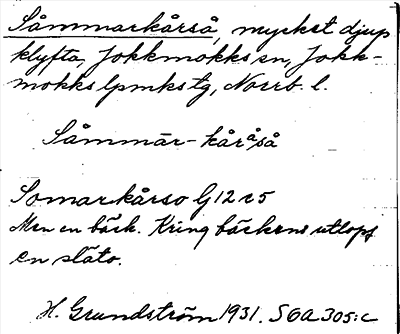 Såmmarkårså, mycket djup
klyfta, Jokkmokks sn, Jokk-
mokks lpmks tg, Norrb. l.
Såmmār-kårᵃ̊så
Somarkårso G 12 r 5
Men en bäck. Kring bäckens utlopp
en släto.
H. Grundström 1931. SOA 305:c